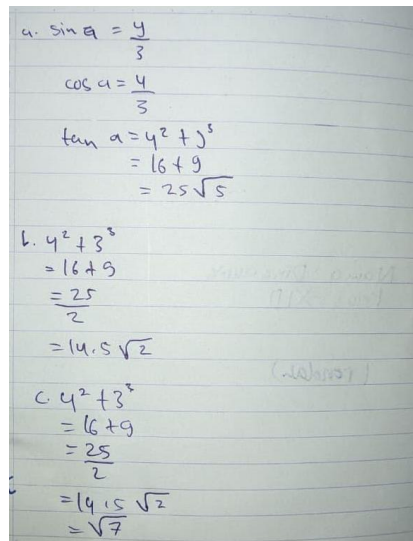 a. sin a = 4/3
cos a = 4/3
tan a = 4² + 3³
= 16 + 9
= 25√5
b. 4² + 3³
= 16 + 9
= 25/2
= 14.5√2
c. 4² + 3³
= 16 + 9
= 25/2
= 14.5√2
= √7